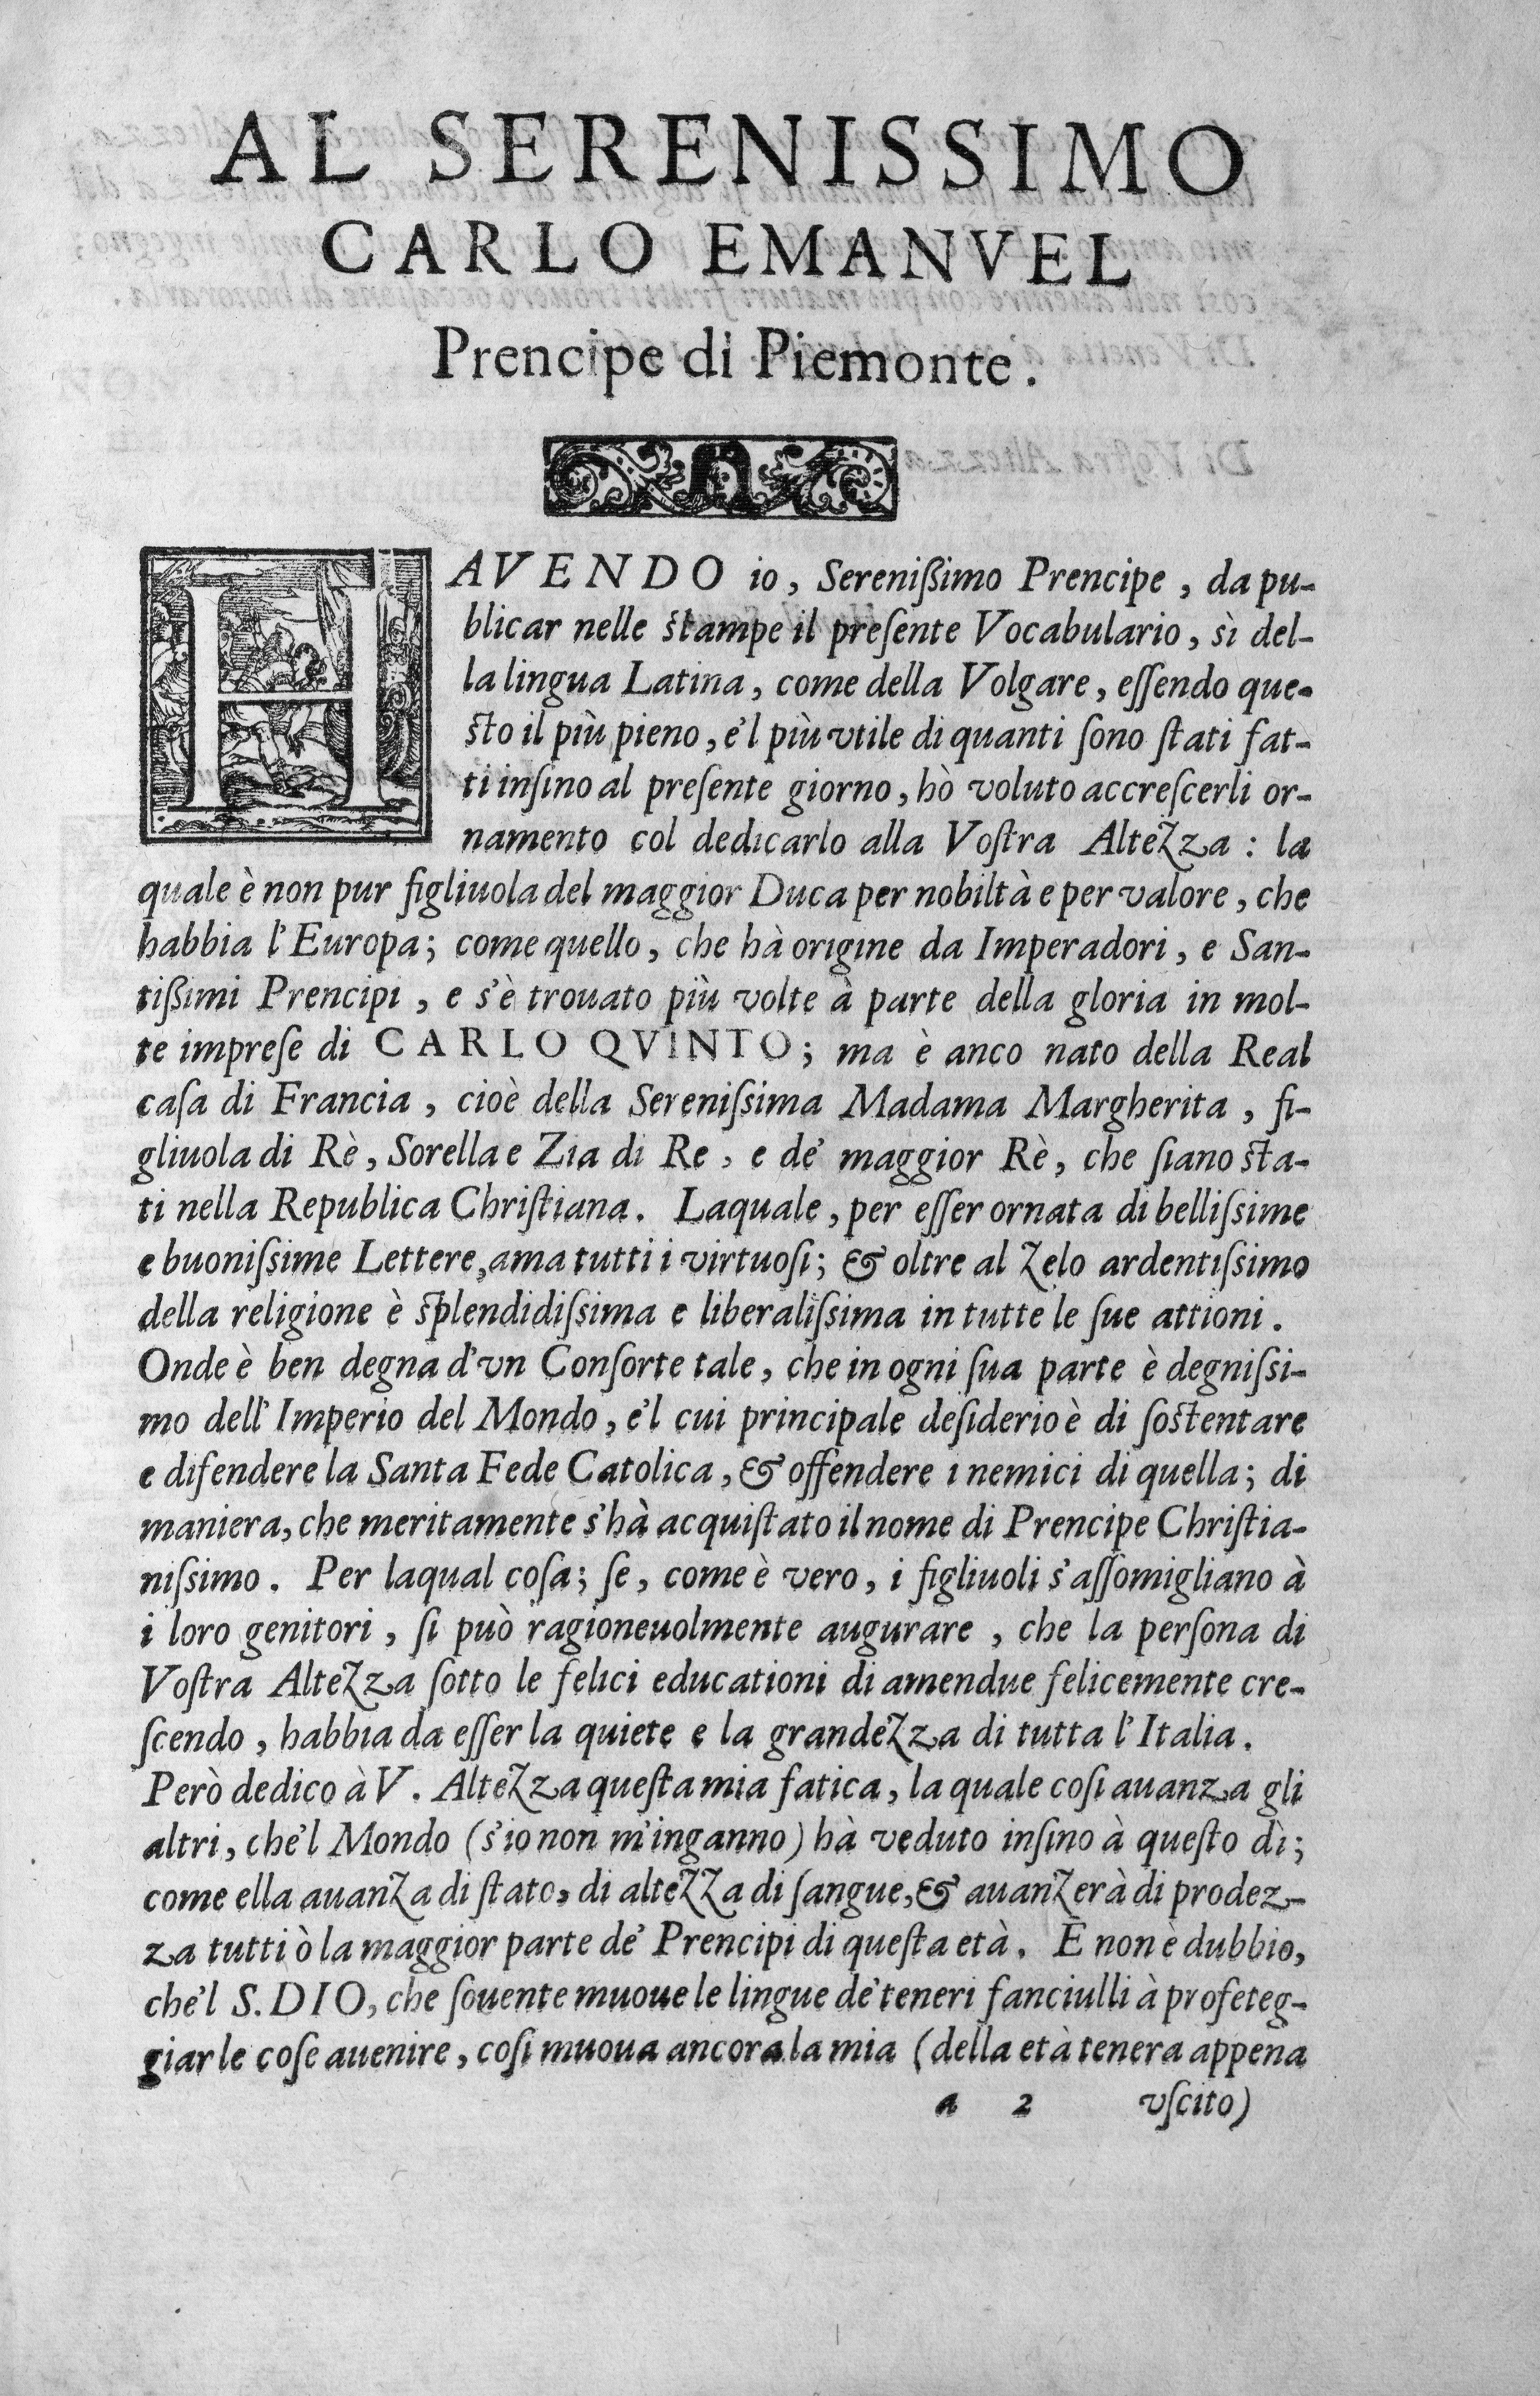 AL SERENISSIMO
CARLO EMANVEL
Prencipe di Piemonte.
HAVENDO io, Serenißimo Prencipe, da pu-
blicar nelle ſtampe il preſente Vocabulario, sì del-
la lingua Latina, come della Volgare, eſſendo que-
ſto il più pieno, e'l più vtile di quanti ſono ſtati fat-
ti inſino al preſente giorno, hò voluto accreſcerli or-
namento col dedicarlo alla Voſtra Altezza: la
quale è non pur figliuola del maggior Duca per nobiltà e per valore, che
habbia l'Europa; come quello, che hà origine da Imperadori, e San-
tißimi Prencipi, e s'è trouato più volte à parte della gloria in mol-
te impreſe di CARLO QVINTO; ma è anco nato della Real
caſa di Francia, cioè della Sereniſsima Madama Margherita, fi-
gliuola di Rè, Sorella e Zia di Re, e de' maggior Rè, che ſiano ſta-
ti nella Republica Chriſtiana. Laquale, per eſſer ornata di belliſsime
e buoniſsime Lettere, ama tutti i virtuoſi; & oltre al zelo ardentiſsimo
della religione è ſplendidiſsima e liberaliſsima in tutte le ſue attioni.
Onde è ben degna d'vn Conſorte tale, che in ogni ſua parte è degniſsi-
mo dell'Imperio del Mondo, e'l cui principale deſiderio è di ſoſtentare
e difendere la Santa Fede Catolica, & offendere i nemici di quella; di
maniera, che meritamente s'hà acquiſtato il nome di Prencipe Chriſtia-
niſsimo. Per laqual coſa; ſe, come è vero, i figliuoli s'aſſomigliano à
i loro genitori, ſi può ragioneuolmente augurare, che la perſona di
Voſtra Altezza ſotto le felici educationi di amendue felicemente cre-
ſcendo, habbia da eſſer la quiete e la grandezza di tutta l'Italia.
Però dedico à V. Altezza queſta mia fatica, la quale coſi auanza gli
altri, che'l Mondo (s'io non m'inganno) hà veduto inſino à queſto dì;
come ella auanza di ſtato, di altezza di ſangue, & auanzerà di prodez-
za tutti ò la maggior parte de' Prencipi di queſta età. E non è dubbio,
che'l S. DIO, che ſouente muoue le lingue de' teneri fanciulli à profeteg-
giar le coſe auenire, coſi muoua ancora la mia (della età tenera appena
a 2 vſcito)